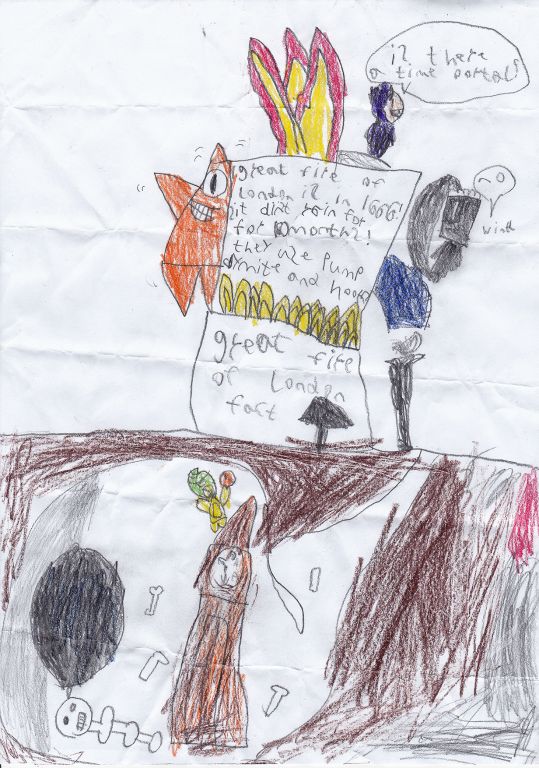 iz there
a time portal?
great fire of
London iz in 1666!
it dint rain for
for 10 months!
they uze pump
dymite and hook
no
wink
great fire
of London
fact